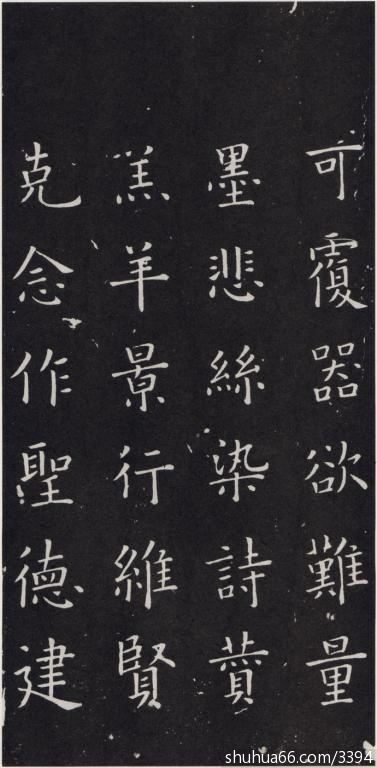 可覆器欲難量
墨悲絲染詩蕡
羔羊景行維賢
克念作聖德建
shuhua66.com/3394